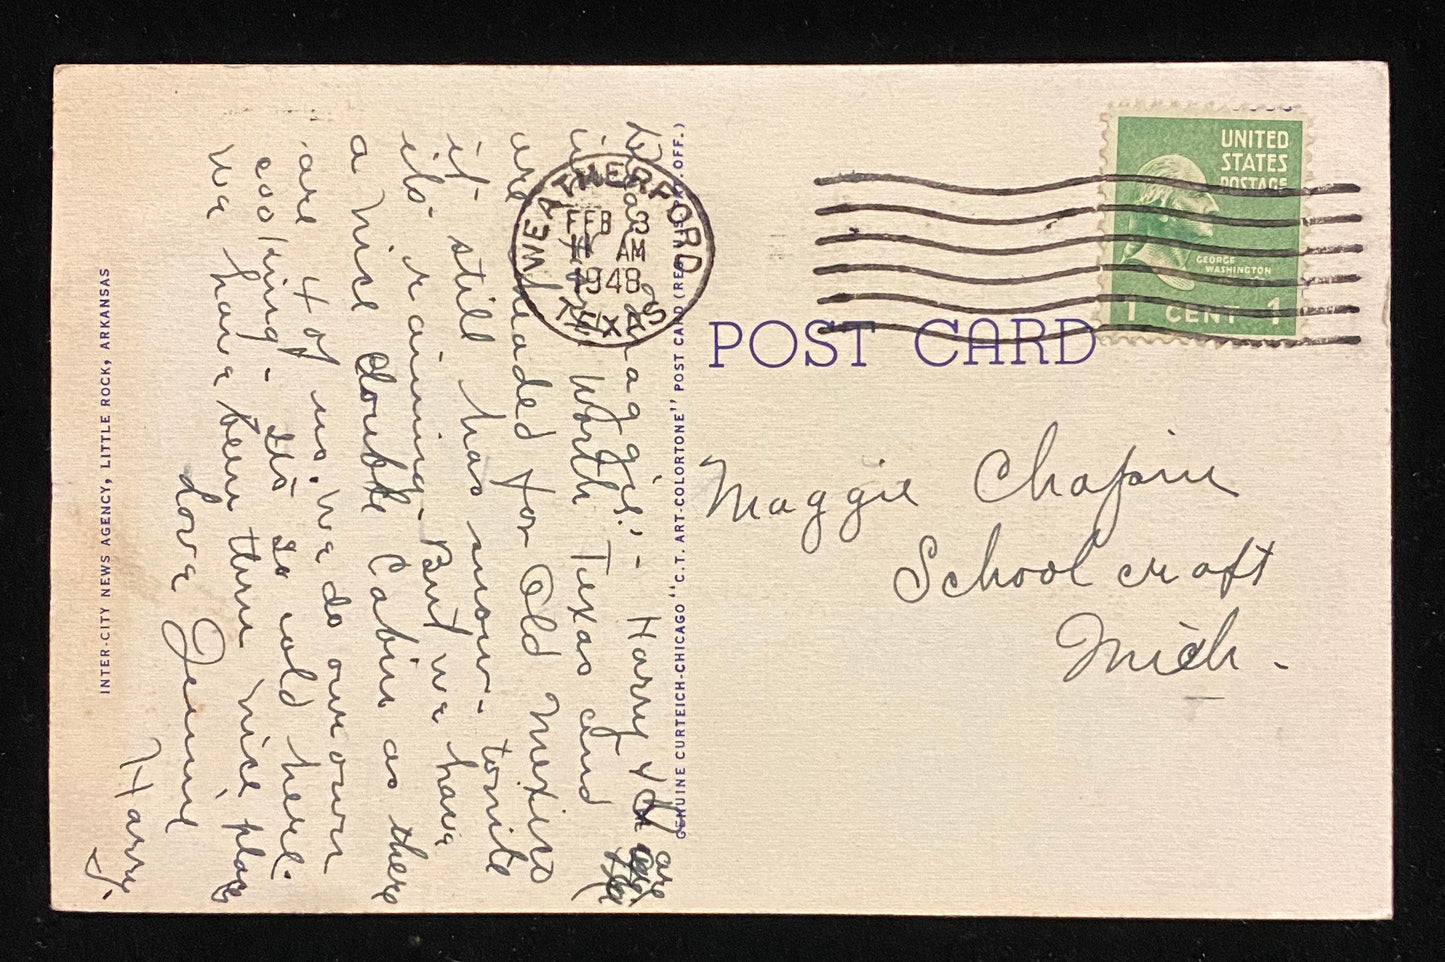 Dear Maggie:- Harry & I are
in Fort Worth Texas and
are headed for Old Mexico
it still has snow- tonite
its raining- But we have
a Nice double Cabin as there
are 4 of us. We do our own
cooking- Its so cold here.
We have been thru nice places
Love Jennie
Harry.
INTER-CITY NEWS AGENCY, LITTLE ROCK, ARKANSAS
GENUINE CURTEICH-CHICAGO "C.T. ART-COLORTONE" POST CARD (REG. U.S. PAT. OFF.)
WEATHERFORD
FEB 3
11 AM
1948
TEXAS
UNITED
STATES
POSTAGE
GEORGE
WASHINGTON
1 CENT 1
POST CARD
Maggie Chapin
Schoolcraft
Mich.